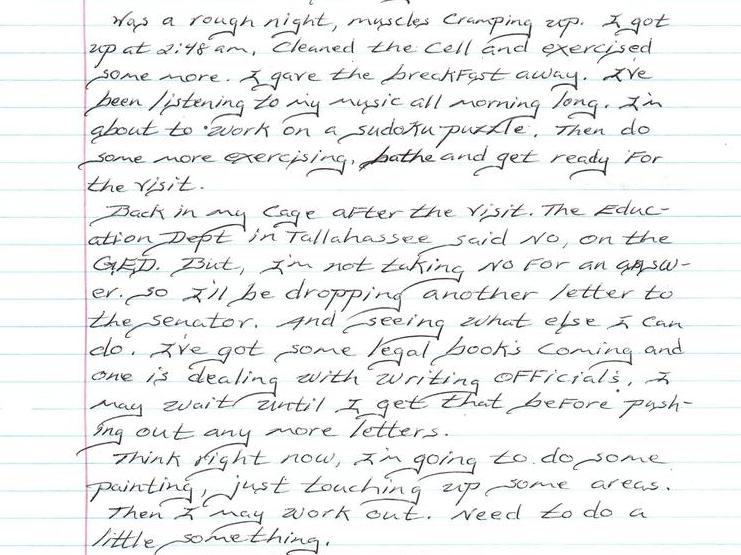 Was a rough night, muscles cramping up. I got
up at 2:48 am, cleaned the cell and exercised
some more. I gave the breakfast away. I've
been listening to my music all morning long. I'm
about to work on a sudoku puzzle. Then do
some more exercising, bathe and get ready for
the visit.
Back in my cage after the visit. The Educ-
ation Dept in Tallahassee said No, on the
G.E.D. But, I'm not taking No for an answ-
er. So I'll be dropping another letter to
the senator. And seeing what else I can
do. I've got some legal books coming and
one is dealing with writing officials, I
may wait until I get that before push-
ing out any more letters.
Think right now, I'm going to do some
painting, just touching up some areas.
Then I may work out. Need to do a
little something.